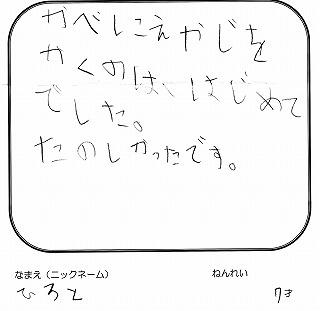 かべにえやじを
かくのは、はじめて
でした。
たのしかったです。
なまえ（ニックネーム）
ねんれい
ひろと
7才